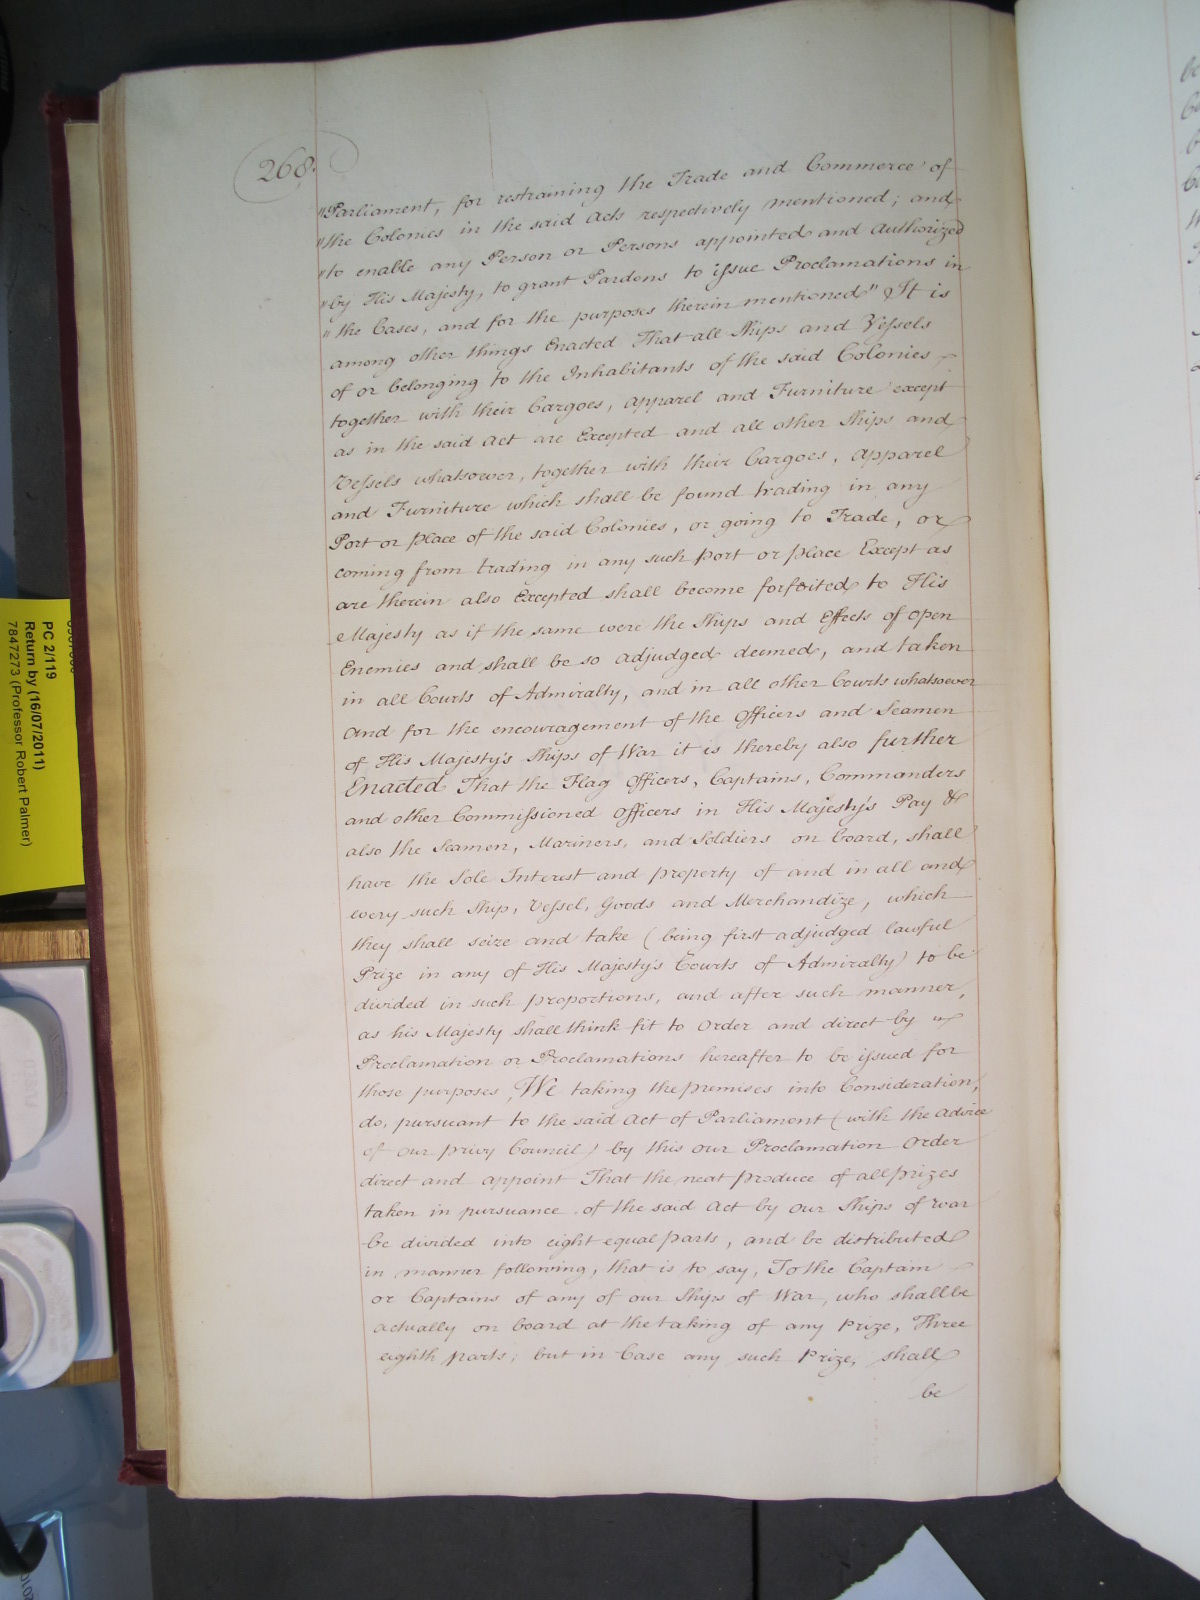 268.
"Parliament, for restraining the Trade and Commerce of
"the Colonies in the said Acts respectively mentioned; and
"to enable any Person or Persons appointed and Authorized
"by His Majesty, to grant Pardons to issue Proclamations in
"the Cases, and for the purposes therein mentioned" It is
among other things Enacted That all Ships and Vessels
of or belonging to the Inhabitants of the said Colonies
together with their Cargoes, Apparel and Furniture except
as in the said Act are Excepted and all other Ships and
Vessels whatsoever, together with their Cargoes, Apparel
and Furniture which shall be found trading in any
Port or place of the said Colonies, or going to Trade, or
coming from trading in any such Port or place Except as
are therein also Excepted shall become forfeited to His
Majesty as if the same were the Ships and Effects of open
Enemies and shall be so adjudged deemed, and taken
in all Courts of Admiralty, and in all other Courts whatsoever
And for the encouragement of the Officers and Seamen
of His Majesty's Ships of War it is thereby also further
Enacted That the Flag Officers, Captains, Commanders
and other Commissioned Officers in His Majesty's Pay &
also the Seamen, Mariners, and Soldiers on board, shall
have the Sole Interest and property of and in all and
every such Ship, Vessel, Goods and Merchandize, which
they shall seize and take (being first adjudged lawful
Prize in any of His Majesty's Courts of Admiralty) to be
divided in such proportions, and after such manner,
as his Majesty shall think fit to Order and direct by
Proclamation or Proclamations hereafter to be issued for
those purposes, We taking the premises into Consideration,
do, pursuant to the said Act of Parliament (with the advice
of our privy Council) by this our Proclamation Order
direct and appoint That the neat produce of all prizes
taken in pursuance of the said Act by our Ships of war
be divided into eight equal parts, and be distributed
in manner following, that is to say, To the Captain
or Captains of any of our Ships of War, who shall be
actually on board at the taking of any prize, Three
eighth parts; but in Case any such Prize, shall
be
PC 2/119
Return by (16/07/2011)
7847273 (Professor Robert Palmer)